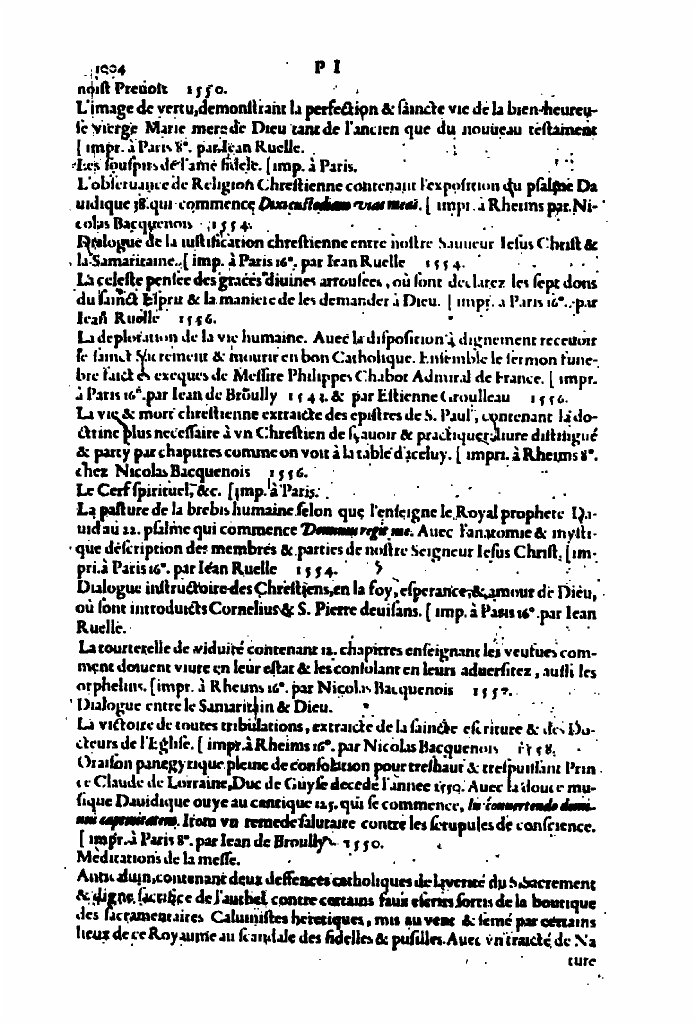 1004 P I
noist Preuost 1550.
L'image de vertu, demonstrant la perfection & saincte vie de la bien-heureu-
se vierge Marie mere de Dieu tant de l'ancien que du nouueau testament
[impr. à Paris 8°. par Iean Ruelle.
Les souspirs de l'ame fidele. [imp. à Paris.
L'obseruance de Religion Chrestienne contenant l'exposition du psalme Da
uidique 38. qui commence Dixi custodiam vias meas. [ impr. à Rheims par Ni-
colas Bacquenois 1554.
Dialogue de la iustification chrestienne entre nostre Sauueur Iesus Christ &
la Samaritaine. [ imp. à Paris 16°. par Iean Ruelle 1554.
La celeste pensee des graces diuines arrousees, où sont declarez les sept dons
du sainct Esprit & la maniere de les demander à Dieu. [ impr. à Paris 16°. par
Iean Ruelle 1556.
La deploration de la vie humaine. Auec la disposition à dignement receuoir
le sainct Sacrement & mourir en bon Catholique. Ensemble le sermon fune-
bre faict és exeques de Messire Philippes Chabot Admiral de France. [ impr.
à Paris 16°. par Iean de Broully 1548. & par Estienne Groulleau 1556.
La vie & mort chrestienne extraicte des epistres de S. Paul, contenant la do-
ctrine plus necessaire à vn Chrestien de sçauoir & practiquer, liure distingué
& party par chapitres comme on voit à la table d'iceluy. [ impri. à Rheims 8°.
chez Nicolas Bacquenois 1556.
Le Cerf spirituel, &c. [imp. à Paris.
La pasture de la brebis humaine selon que l'enseigne le Royal prophete Da-
uid au 22. psalme qui commence Dominus regit me. Auec l'anatomie & mysti-
que description des membres & parties de nostre Seigneur Iesus Christ. [im-
pri. à Paris 16°. par Iean Ruelle 1554.
Dialogue instructoire des Chrestiens, en la foy, esperance, & amour de Dieu,
où sont introduicts Cornelius & S. Pierre deuisans. [ imp. à Paris 16°. par Iean
Ruelle.
La tourterelle de viduité contenant 12. chapitres enseignant les veufues com-
ment doiuent viure en leur estat & les consolant en leurs aduersitez, aussi les
orphelins. [impr. à Rheims 16°. par Nicolas Bacquenois 1557.
Dialogue entre le Samaritain & Dieu.
La victoire de toutes tribulations, extraicte de la saincte escriture & des Do-
cteurs de l'Eglise. [ impr. à Rheims 16°. par Nicolas Bacquenois 1558.
Oraison panegyrique pleine de consolation pour treshaut & trespuissant Prin
ce Claude de Lorraine, Duc de Guyse decedé l'annee 1550. Auec la douce mu-
sique Dauidique ouye au cantique 125. qui se commence, In conuertendo domi-
nus captiuitatem. Item vn remede salutaire contre les scrupules de conscience.
[ impr. à Paris 8°. par Iean de Broully 1550.
Meditations de la messe.
contenant deux deffences catholiques de la verité du S. Sacrement
& digne sacrifice de l'authel contre certains faux escrits sortis de la boutique
des sacramentaires Caluinistes heretiques, mis au vent & semé par certains
lieux de ce Royaume au scandale des fidelles & pusilles. Auec vn traicté de Na
ture